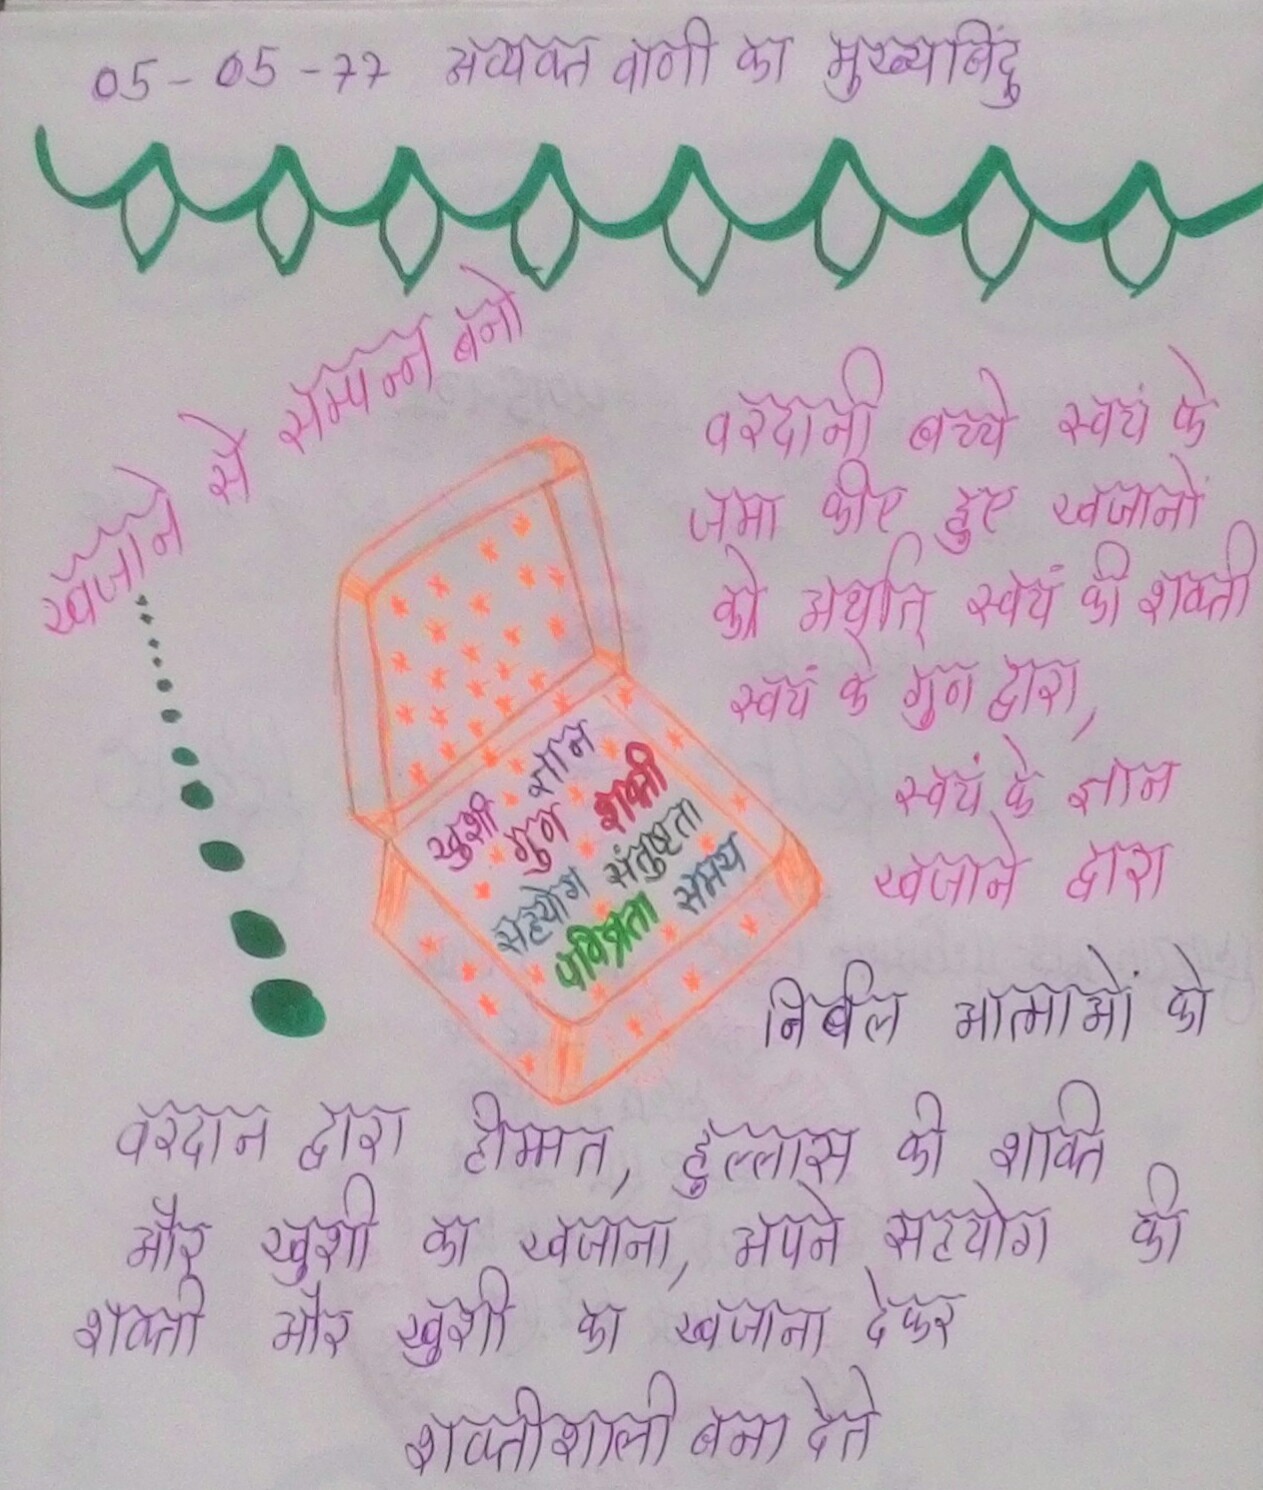 05-05-77 अव्यक्त वाणी का मुख्यबिंदु
खजाने से सम्पन्न बनो
वरदानी बच्चे स्वयं के
जमा कीए हुए खजानों
को अर्थात् स्वयं की शक्ती
स्वयं के गुन द्वारा,
स्वयं के ज्ञान
खजाने द्वारा
खुशी ज्ञान
गुन शक्ती
सहयोग संतुष्टता
पवित्रता समय
निर्बल आत्माओं को
वरदान द्वारा हीम्मत, हुल्लास की शक्ति
और खुशी का खजाना, अपने सहयोग की
शक्ती और खुशी का खजाना देकर
शक्तीशाली बना देते